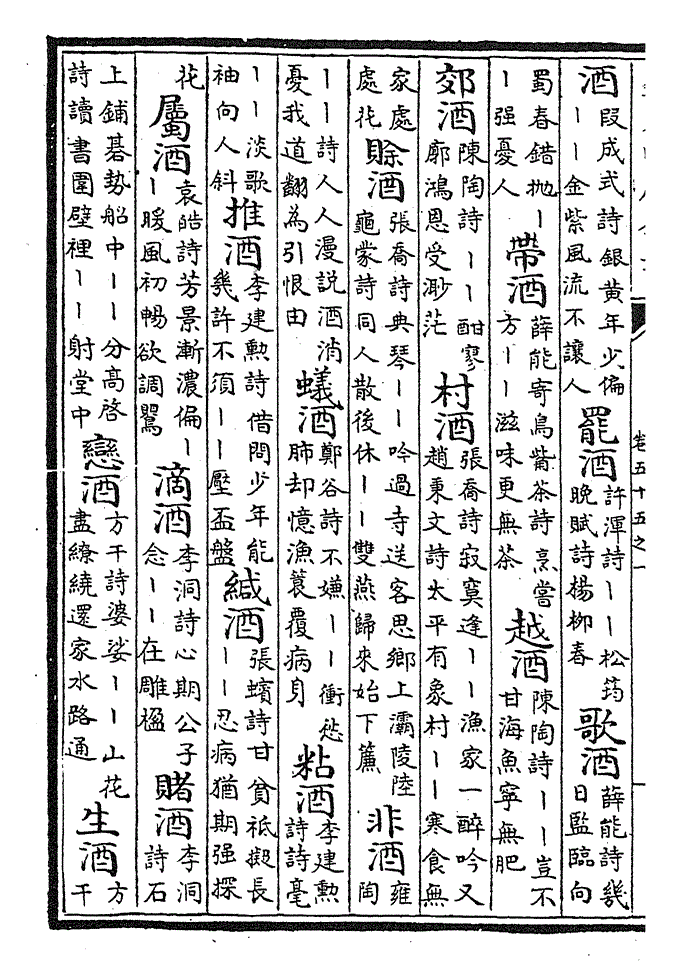 酒段成式詩銀黄年少偏丨丨金紫風流不讓人罷酒許渾詩丨丨松筠晚賦詩楊柳春歌酒薛能詩幾日監臨向
蜀春錯抛丨丨强憂人帶酒薛能寄鳥觜茶詩烹嘗方丨丨滋味更無茶越酒陳陶詩丨丨豈不甘海魚寧無肥
郊酒陳陶詩丨丨酣寥廓鴻恩受渺茫村酒張喬詩寂寞逢丨丨漁家一醉吟又趙秉文詩太平有象村丨丨寒食無
家處處花賖酒張喬詩典琴丨丨吟過寺送客思鄉上灞陵陸龜蒙詩同人散後休丨丨雙燕歸來始下簾非酒雍陶
丨丨詩人人漫說酒消憂我道翻為引恨由蟻酒鄭谷詩不嫌丨丨衝愁肺却憶漁蓑覆病身粘酒李建勲詩詩毫
丨丨淡歌袖向人斜推酒李建勲詩借問少年能幾許不須丨丨壓盃盤緘酒張蠙詩甘貧祗擬長丨丨忍病猶期强採
花屬酒袁皓詩芳景漸濃偏丨丨暖風初暢欲調鸎滴酒李洞詩心期公子念丨丨在雕楹賭酒李洞詩石
上鋪碁勢船中丨丨分高啓詩讀書圍壁裡丨丨射堂中戀酒方干詩婆娑丨丨山花盡繚繞還家水路通生酒方干
卷五十五之一